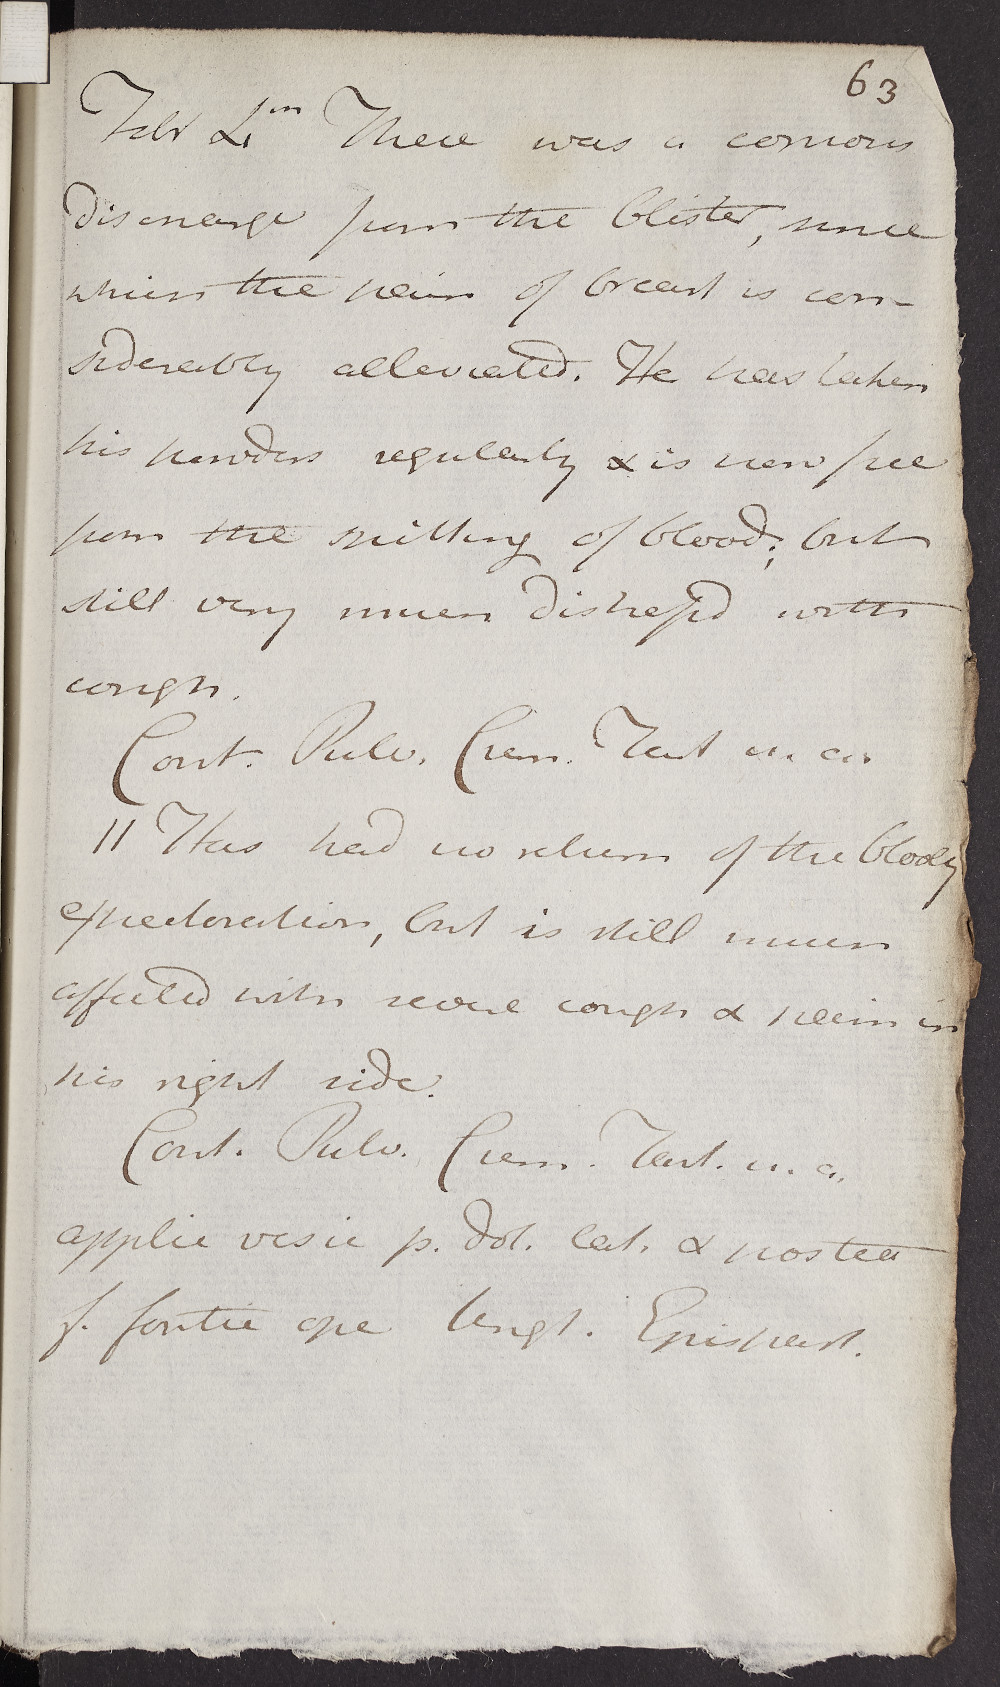 63
Febr 4th There was a copious
discharge from the blister, since
which the pain of breast is con-
siderably alleviated. He has taken
his powders regularly & is now free
from the spitting of blood; but
still very much distressed with
cough.
Cont. Pulv. Crem. Tart u. a.
11 Has had no return of the bloody
expectoration, but is still much
affected with severe cough & pain in
his right side.
Cont. Pulv. Crem. Tart. u. a.
applic vesic p. dol. lat. & postea
f. fontic ope Ungt. Epispast.